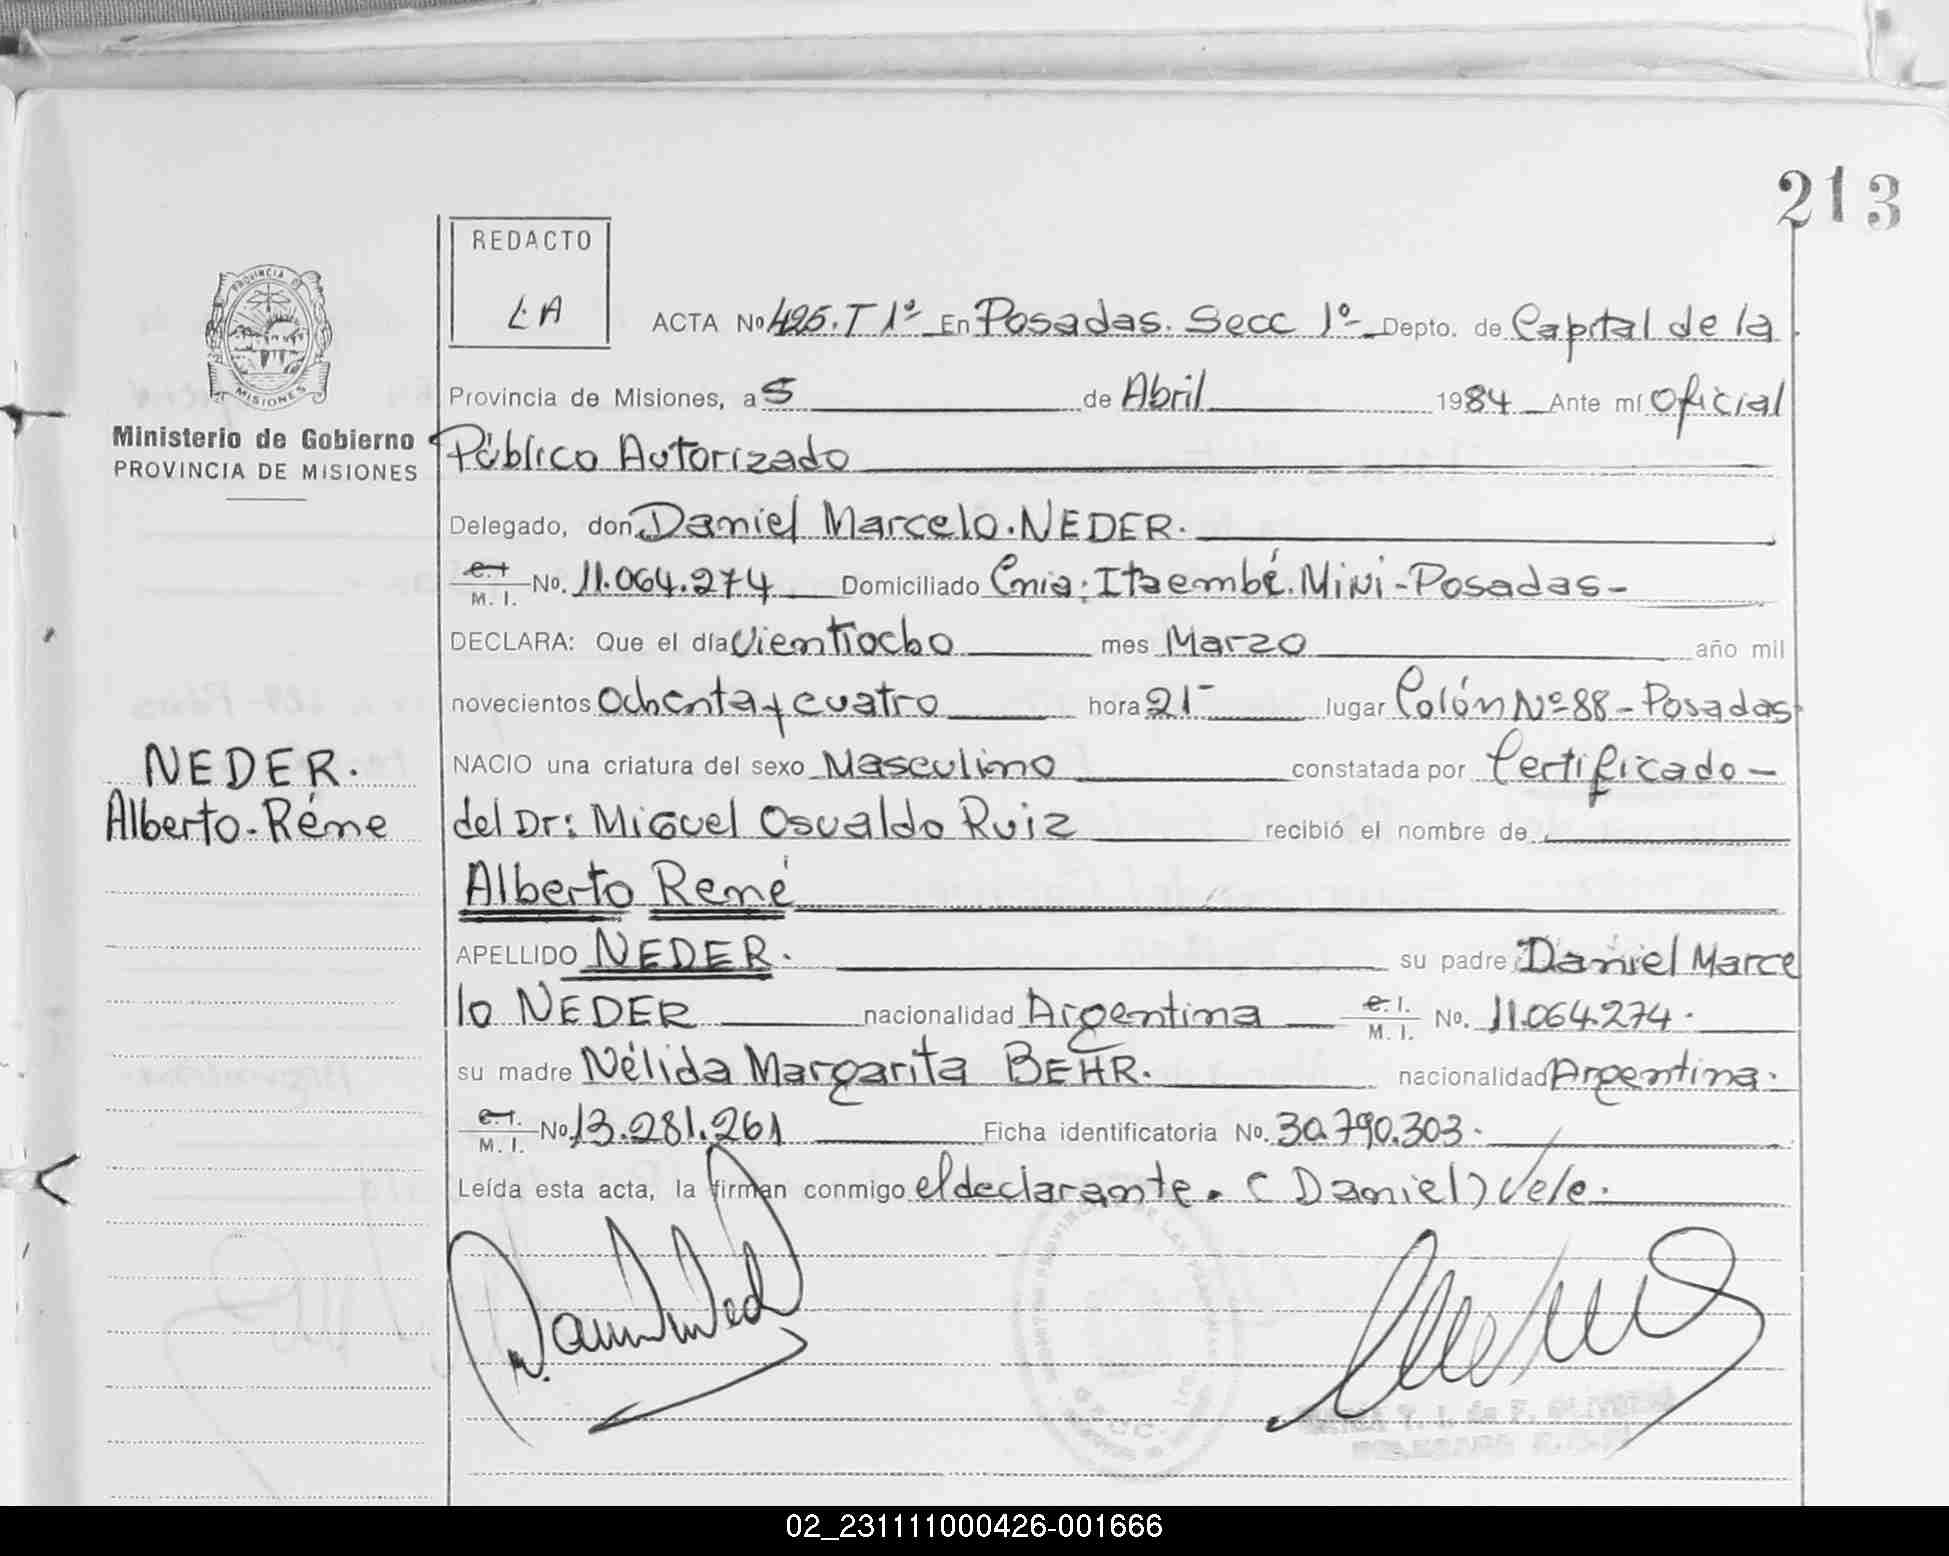 213
REDACTO
LA
PROVINCIA DE
MISIONES
Ministerio de Gobierno
PROVINCIA DE MISIONES
ACTA Nº 425. T 1º En Posadas. Secc 1º Depto. de Capital de la
Provincia de Misiones, a 5 de Abril 1984 Ante mí Oficial
Público Autorizado
Delegado, don Daniel Marcelo. NEDER.
C.I. M. I. No. 11.064.274 Domiciliado Cnia: Itaembé. Mini - Posadas -
DECLARA: Que el día vientiocho mes Marzo año mil
novecientos Ochenta y cuatro hora 21- lugar Colón Nº 88 - Posadas
NACIO una criatura del sexo Masculino constatada por Certificado -
del Dr: Miguel Osvaldo Ruiz recibió el nombre de
Alberto René
APELLIDO NEDER. su padre Daniel Marce
lo NEDER nacionalidad Argentina C.I. M. I. No. 11.064.274.
su madre Nélida Margarita BEHR. nacionalidad Argentina.
C.I. M. I. No 13.281.261 Ficha identificatoria No. 30.790.303.
Leída esta acta, la firman conmigo el declarante. (Daniel) Vele.
NEDER.
Alberto. Réne
02_231111000426-001666